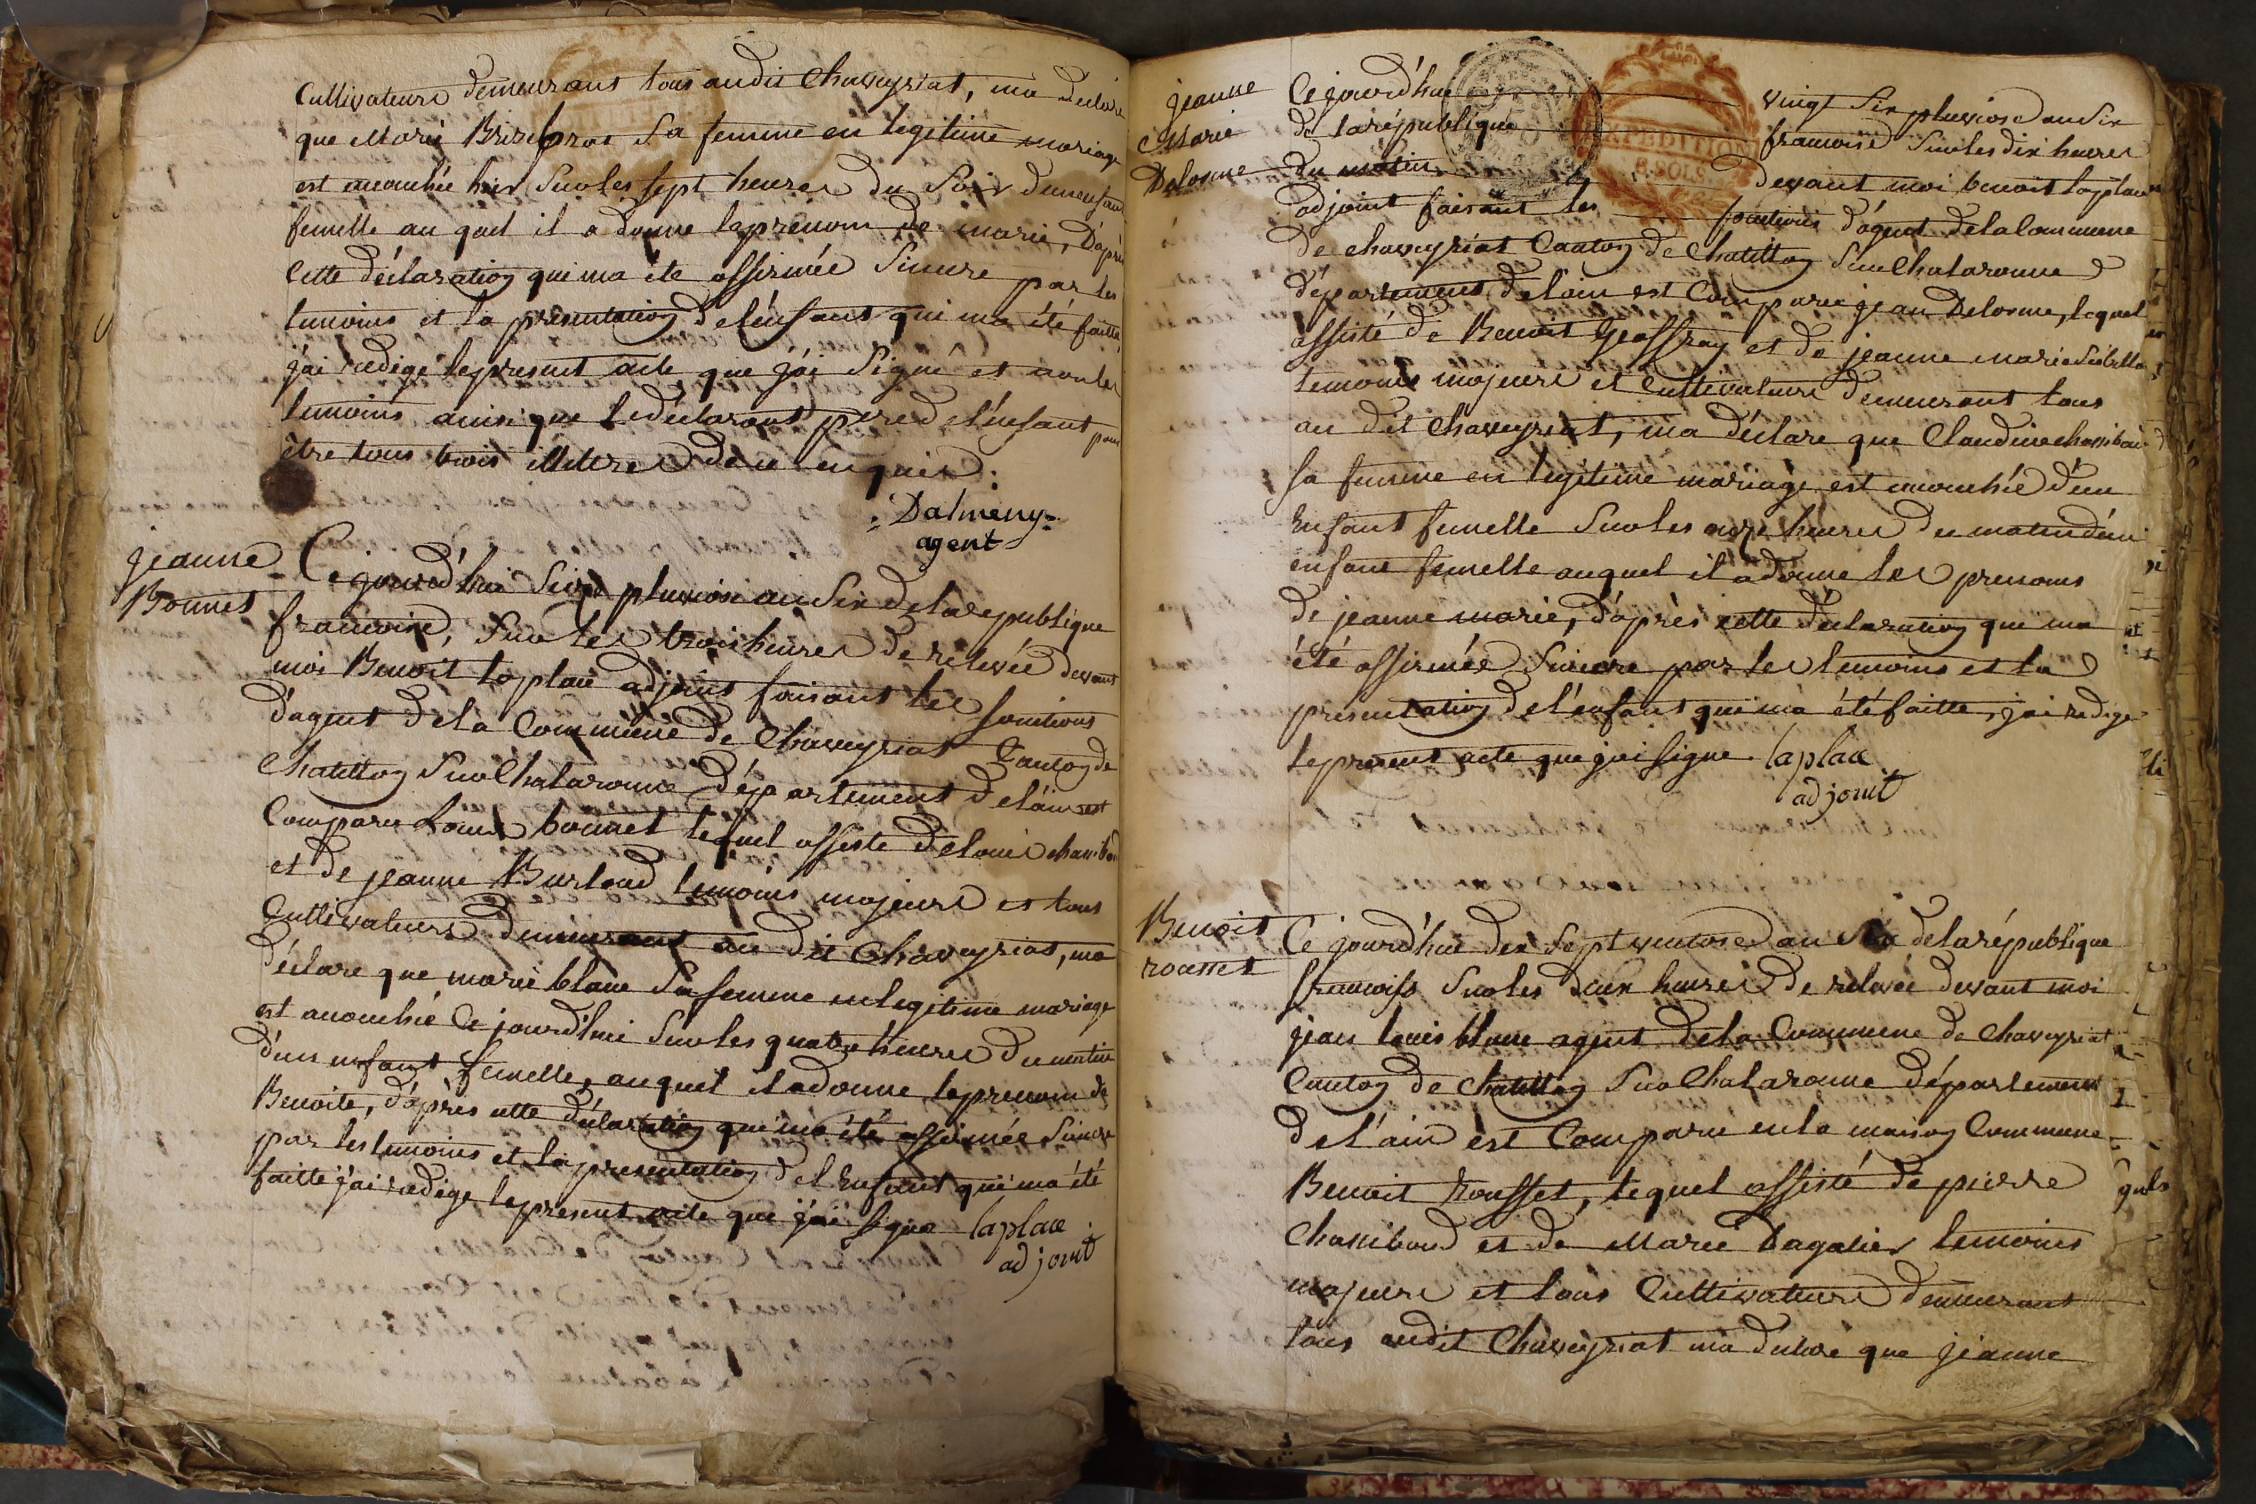 Cultivateurs demeurant tous audit Chaveyriat, ma déclaré
que Marie Brisebras Sa femme en legitime mariage
est accouchée hier Sur les sept heures du Soir d'un enfant
femelle au quel il a donné le prénom de marie, D'après
Cette déclaration qui ma été affirmée Sincere par les
temoins et la présentation de l'enfant qui ma été faitte
j'ai redigé le present acte que j'ai Signé et non les
temoins ainsi que le déclarant pere de l'enfant pour
être tous trois illitéré de ce enquis.
Dalmeny
agent
jeanne
Bonnet
Ce jourd'hui Seize pluviose an Six de la republique
francoise, Sur les trois heures de relevée devant
moi Benoit laplace adjoint faisant les fonctions
d'agent de la Commune de Chaveyriat Canton de
Chatillon Sur Chalaronne département de l'ain est
Comparu Louis bonnet lequel assisté de Louis chanibou
et de jeanne Burtoud temoins majeurs et tous
Cultivateurs demeurant au dit Chaveyriat, ma
déclaré que marie blanc Sa femme en legitime mariage
est accouchée Ce jourd'hui Sur les quatre heures du matin
d'un enfant femelle, auquel il a donné le prenom de
Benoite, d'après cette déclaration qui ma été affirmée Sincere
par les temoins et la présentation de l'Enfant qui ma été
faitte j'ai redigé le present acte que j'ai Signé laplace
adjoint
jeanne
Marie
Delorme
Ce jourd'hui vingt Six pluviose an Six
de la république francoise Sur les dix heures
du matin devant moi benoit laplace
adjoint faisant les fonctions d'agent de la Commune
de chaveyriat Canton de Chatillon Sur Chalaronne
département de l'ain est Comparu jean Delorme, lequel
assisté de Benoit Geoffray et de jeanne marie
temoins majeurs et Cultivateurs demeurant tous
au dit Chaveyriat, ma déclaré que Claudine chanibou
Sa femme en legitime mariage est accouchée d'un
Enfant femelle Sur les onze heures du matin d'un
enfant femelle auquel il a donné les prenoms
de jeanne marie, d'après cette déclaration qui ma
été affirmée Sincere par les temoins et la
présentation de l'enfant qui m'a été faitte, j'ai redigé
le present acte que j'ai signé laplace
adjoint
EXPEDITION
8. SOLS
Benoit
rousset
Ce jourd'hui dix Sept ventose an Six de la république
francoise Sur les deux heures de relevée devant moi
jean louis blanc agent de la Commune de Chaveyriat
Canton de Chatillon Sur Chalaronne département
de l'ain est Comparu en la maison Commune
Benoit Rousset, lequel assisté de pierre
Chaniboud et de Marie Dagalier temoins
majeurs et tous Cultivateurs demeurant
tous audit Chaveyriat ma déclaré que jeanne